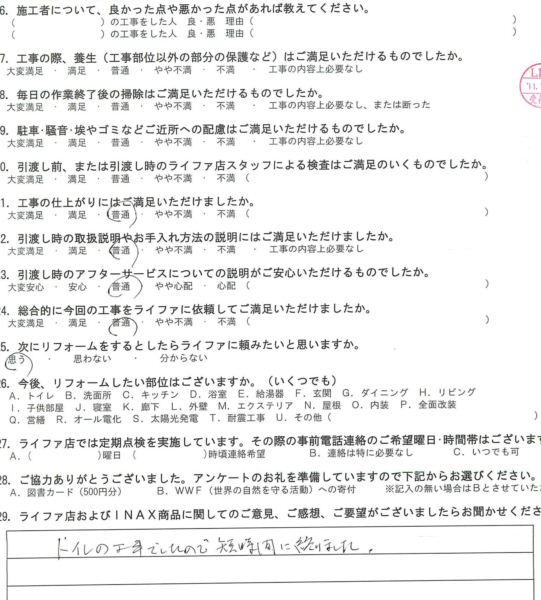 6. 施工者について、良かった点や悪かった点があれば教えてください。
( )の工事をした人 良・悪 理由( )
( )の工事をした人 良・悪 理由( )
7. 工事の際、養生（工事部位以外の部分の保護など）はご満足いただけるものでしたか。
大変満足 ・ 満足 ・ 普通 ・ やや不満 ・ 不満 ・ 工事の内容上必要なし
8. 毎日の作業終了後の掃除はご満足いただけるものでしたか。
大変満足 ・ 満足 ・ 普通 ・ やや不満 ・ 不満 ・ 工事の内容上必要なし、または断った
9. 駐車・騒音・埃やゴミなどご近所への配慮はご満足いただけるものでしたか。
大変満足 ・ 満足 ・ 普通 ・ やや不満 ・ 不満 ・ 工事の内容上必要なし
0. 引渡し前、または引渡し時のライファ店スタッフによる検査はご満足のいくものでしたか。
大変満足 ・ 満足 ・ 普通 ・ やや不満 ・ 不満 ( )
1. 工事の仕上がりにはご満足いただけましたか。
大変満足 ・ 満足 ・ 普通 ・ やや不満 ・ 不満 ( )
2. 引渡し時の取扱説明やお手入れ方法の説明にはご満足いただけましたか。
大変満足 ・ 満足 ・ 普通 ・ やや不満 ・ 不満 ・ 工事の内容上必要なし
3. 引渡し時のアフターサービスについての説明がご安心いただけるものでしたか。
大変安心 ・ 安心 ・ 普通 ・ やや心配 ・ 心配 ( )
24. 総合的に今回の工事をライファに依頼してご満足いただけましたか。
大変満足 ・ 満足 ・ 普通 ・ やや不満 ・ 不満 ( )
5. 次にリフォームをするとしたらライファに頼みたいと思いますか。
思う ・ 思わない ・ 分からない
26. 今後、リフォームしたい部位はございますか。（いくつでも）
A. トイレ B. 洗面所 C. キッチン D. 浴室 E. 給湯器 F. 玄関 G. ダイニング H. リビング
I. 子供部屋 J. 寝室 K. 廊下 L. 外壁 M. エクステリア N. 屋根 O. 内装 P. 全面改装
Q. 営繕 R. オール電化 S. 太陽光発電 T. 耐震工事 U. その他( )
27. ライファ店では定期点検を実施しています。その際の事前電話連絡のご希望曜日・時間帯はございます
A. ( )曜日 ( )時頃連絡希望 B. 連絡は特に必要なし C. いつでも可
28. ご協力ありがとうございました。アンケートのお礼を準備していますので下記からお選びください。
A. 図書カード（500円分） B. WWF（世界の自然を守る活動）への寄付 ※記入の無い場合はBとさせていた
29. ライファ店およびINAX商品に関してのご意見、ご感想、ご要望がございましたらお聞かせくださ
トイレの工事でしたので短時間に終りました。